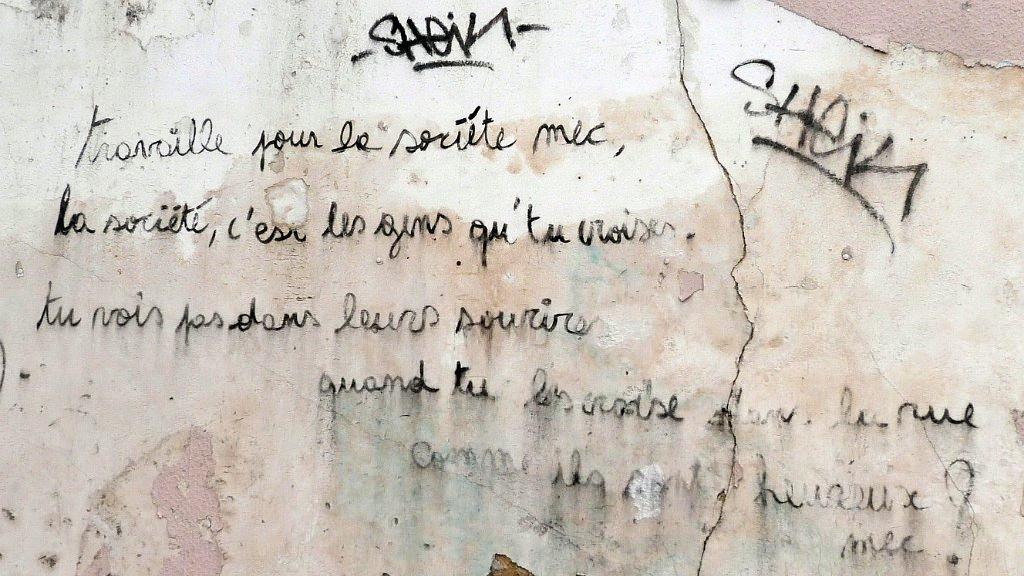 -SHEIK-
SHEIK
travaille pour la société mec,
la société, c'est les gens qu'tu croises.
tu vois pas dans leurs sourires
quand tu les croise dans la rue
comme ils sont heureux ?
mec.